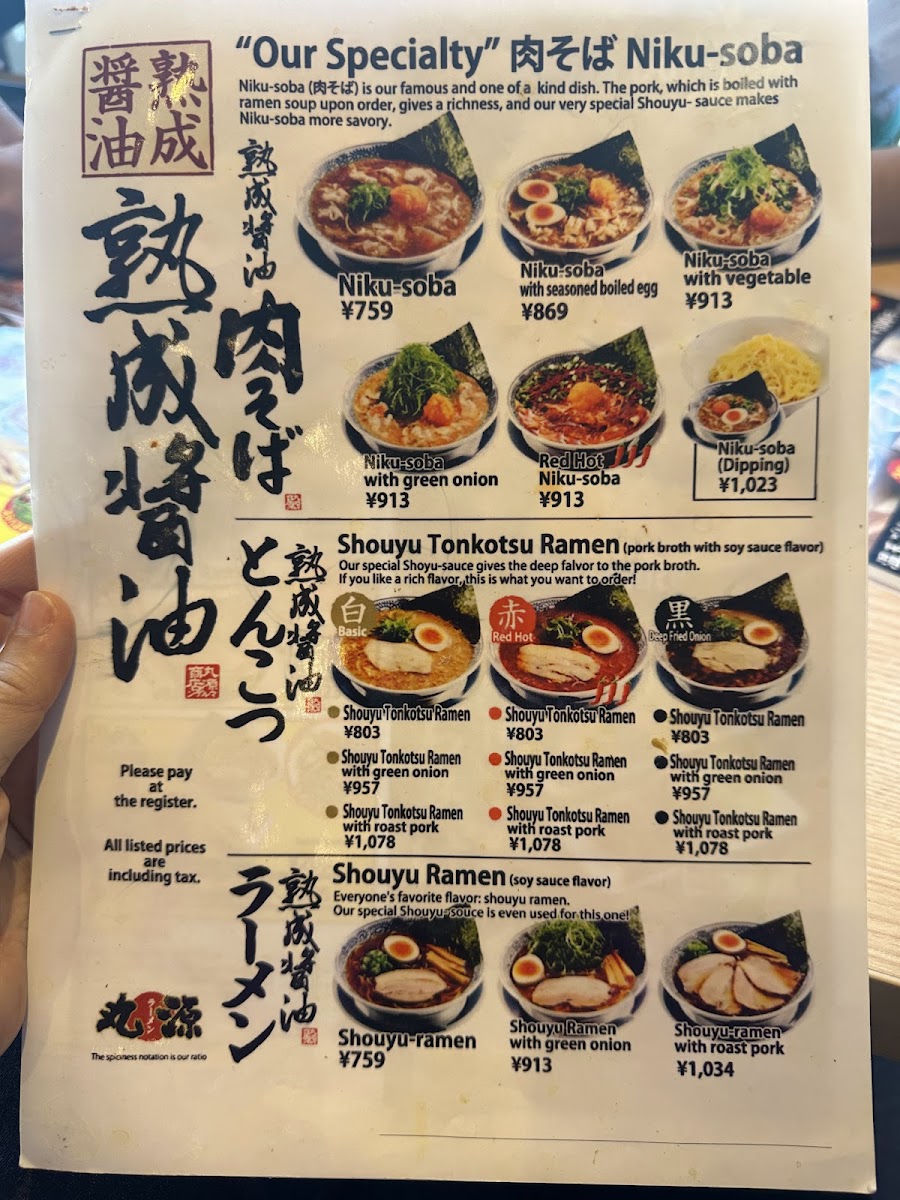 熟成
醤油
熟成醤油
"Our Specialty" 肉そば Niku-soba
Niku-soba (肉そば) is our famous and one of a kind dish. The pork, which is boiled with
ramen soup upon order, gives a richness, and our very special Shouyu- sauce makes
Niku-soba more savory.
熟成醤油
肉そば
Niku-soba
¥759
Niku-soba
with seasoned boiled egg
¥869
Niku-soba
with vegetable
¥913
Niku-soba
with green onion
¥913
Red Hot
Niku-soba
¥913
Niku-soba
(Dipping)
¥1,023
熟成醤油
とんこつ
Shouyu Tonkotsu Ramen (pork broth with soy sauce flavor)
Our special Shoyu-sauce gives the deep falvor to the pork broth.
If you like a rich flavor, this is what you want to order!
白
Basic
赤
Red Hot
黒
Deep Fried Onion
Shouyu Tonkotsu Ramen
¥803
Shouyu Tonkotsu Ramen
with green onion
¥957
Shouyu Tonkotsu Ramen
with roast pork
¥1,078
Shouyu Tonkotsu Ramen
¥803
Shouyu Tonkotsu Ramen
with green onion
¥957
Shouyu Tonkotsu Ramen
with roast pork
¥1,078
Shouyu Tonkotsu Ramen
¥803
Shouyu Tonkotsu Ramen
with green onion
¥957
Shouyu Tonkotsu Ramen
with roast pork
¥1,078
Please pay
at
the register.
All listed prices
are
including tax.
熟成醤油
ラーメン
Shouyu Ramen (soy sauce flavor)
Everyone's favorite flavor: shouyu ramen.
Our special Shouyu-souce is even used for this one!
Shouyu-ramen
¥759
Shouyu Ramen
with green onion
¥913
Shouyu-ramen
with roast pork
¥1,034
丸源
ラーメン
The spiciness notation is our ratio